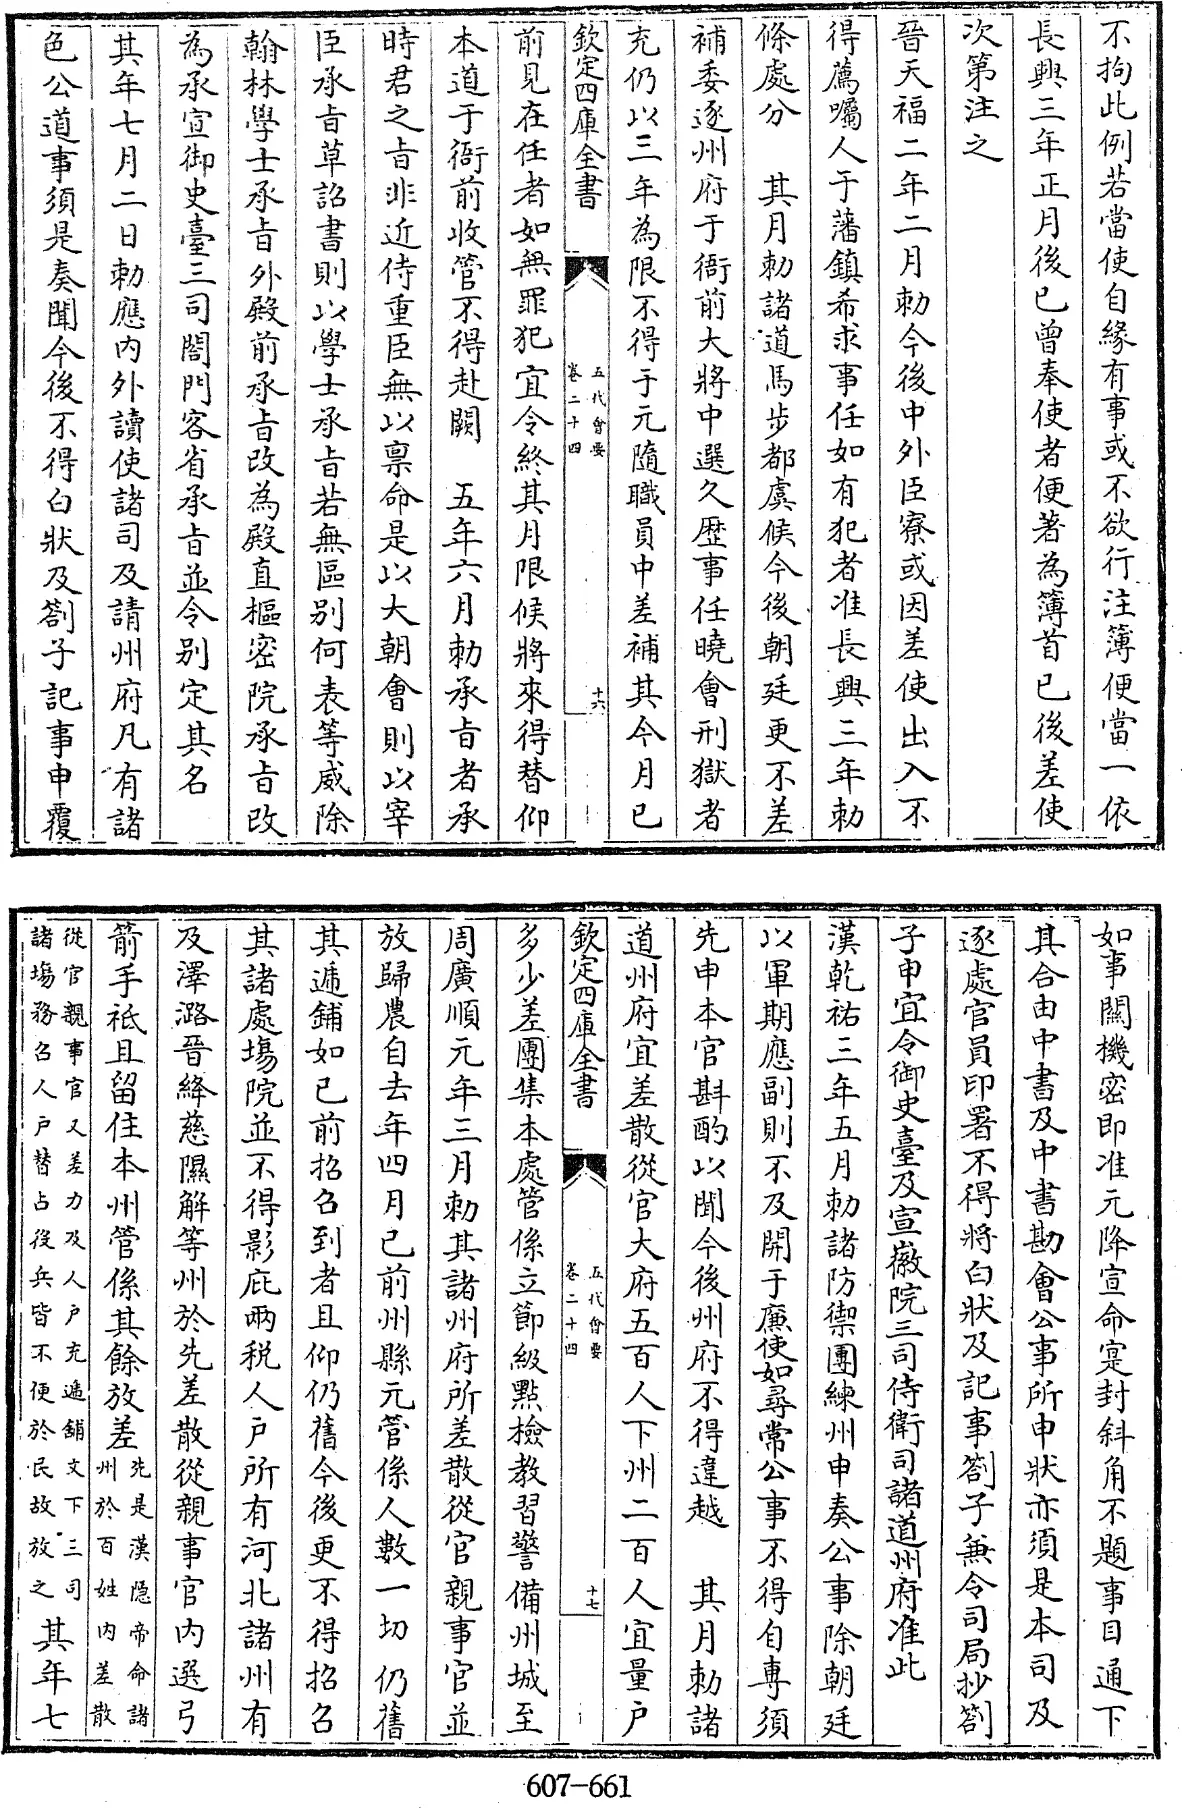 不拘此例若當使自緣有事或不欲行注簿便當一依
長興三年正月後已曾奉使者便著為簿首已後差使
次第注之
晉天福二年二月勅今後中外臣寮或因差使出入不
得薦囑人于藩鎮希求事任如有犯者准長興三年勅
條處分　其月勅諸道馬步都虞候今後朝廷更不差
補委逐州府于衙前大將中選久歴事任曉會刑獄者
充仍以三年為限不得于元隨職員中差補其今月已
欽定四庫全書
五代會要
卷二十四
十六
前見在任者如無罪犯宜令終其月限候將來得替仰
本道于衙前收管不得赴闕　五年六月勅承旨者承
時君之旨非近侍重臣無以禀命是以大朝會則以宰
臣承旨草詔書則以學士承旨若無區别何表等威除
翰林學士承旨外殿前承旨改為殿直樞密院承旨改
為承宣御史臺三司閤門客省承旨並令别定其名
其年七月二日勅應内外讀使諸司及請州府凡有諸
色公道事須是奏聞今後不得白狀及劄子記事申覆
如事關機密即准元降宣命寔封斜角不題事目通下
其合由中書及中書勘會公事所申狀亦須是本司及
逐處官員印署不得將白狀及記事劄子兼令司局抄劄
子申宜令御史臺及宣徽院三司侍衛司諸道州府准此
漢乾祐三年五月勅諸防禦團練州申奏公事除朝廷
以軍期應副則不及聞于廉使如尋常公事不得自專須
先申本官斟酌以聞今後州府不得違越　其月勅諸
道州府宜差散從官大府五百人下州二百人宜量戸
欽定四庫全書
五代會要
卷二十四
十七
多少差團集本處管係立節級點檢教習警備州城至
周廣順元年三月勅其諸州府所差散從官親事官並
放歸農自去年四月已前州縣元管係人數一切仍舊
其遞鋪如已前招召到者且仰仍舊今後更不得招召
其諸處塲院並不得影庇兩税人戸所有河北諸州有
及澤潞晉絳慈隰解等州於先差散從親事官内選弓
箭手祇且留住本州管係其餘放差先是漢隐帝命諸州於百姓内差散
從官親事官又差力及人戸充遞舖文下三司諸塲務召人戸替占役兵皆不便於民故放之其年七
607-661